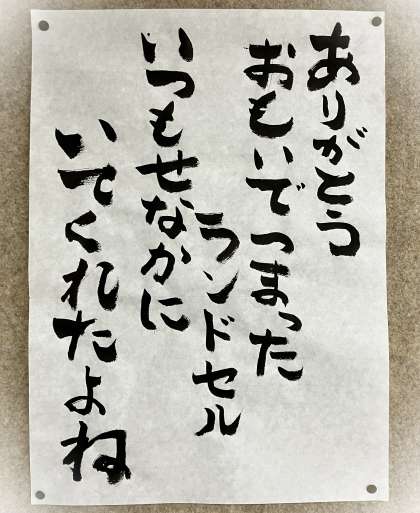 ありがとう
おもいでつまった
ランドセル
いつもせなかに
いてくれたよね